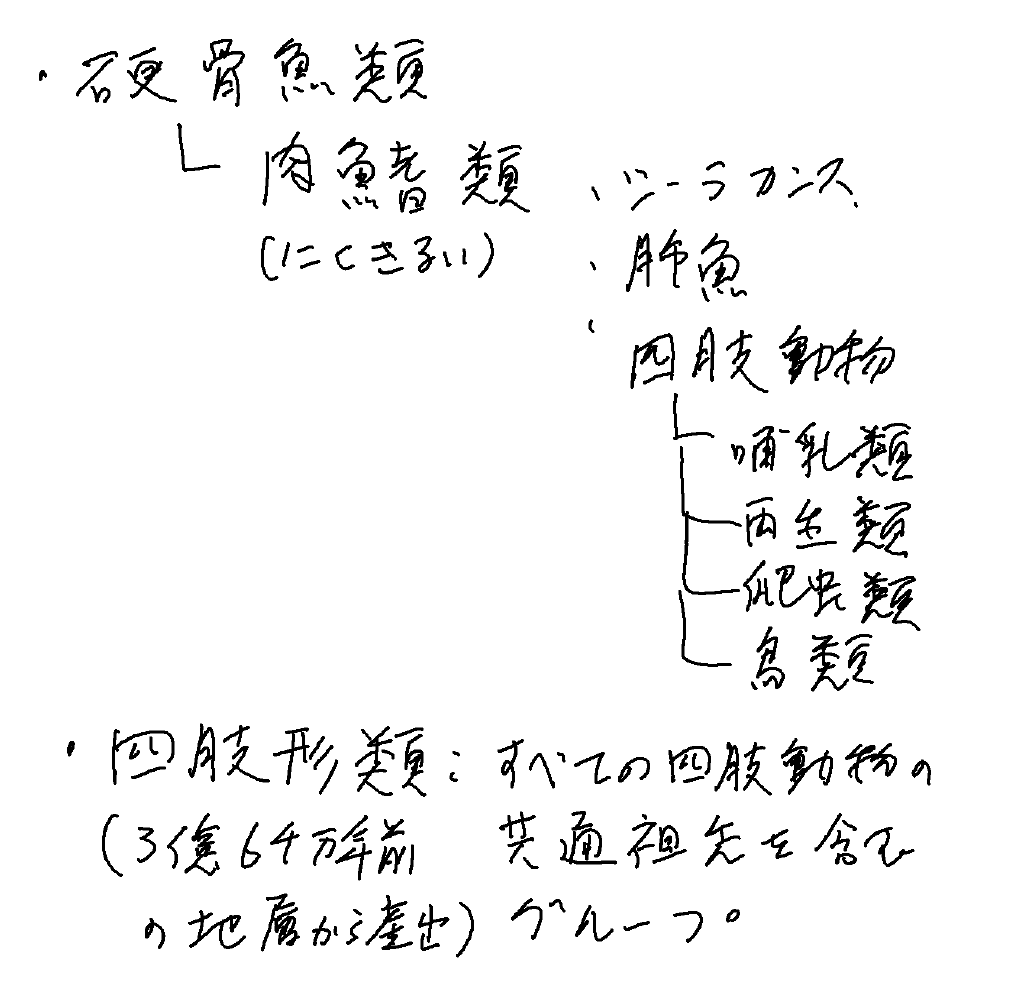 ・硬骨魚類
肉鰭類 ・シーラカンス
(にくきるい) ・肺魚
・四肢動物
哺乳類
両生類
爬虫類
鳥類
・四肢形類:すべての四肢動物の
(3億6千万年前 共通祖先を含む
の地層から産出) グループ。